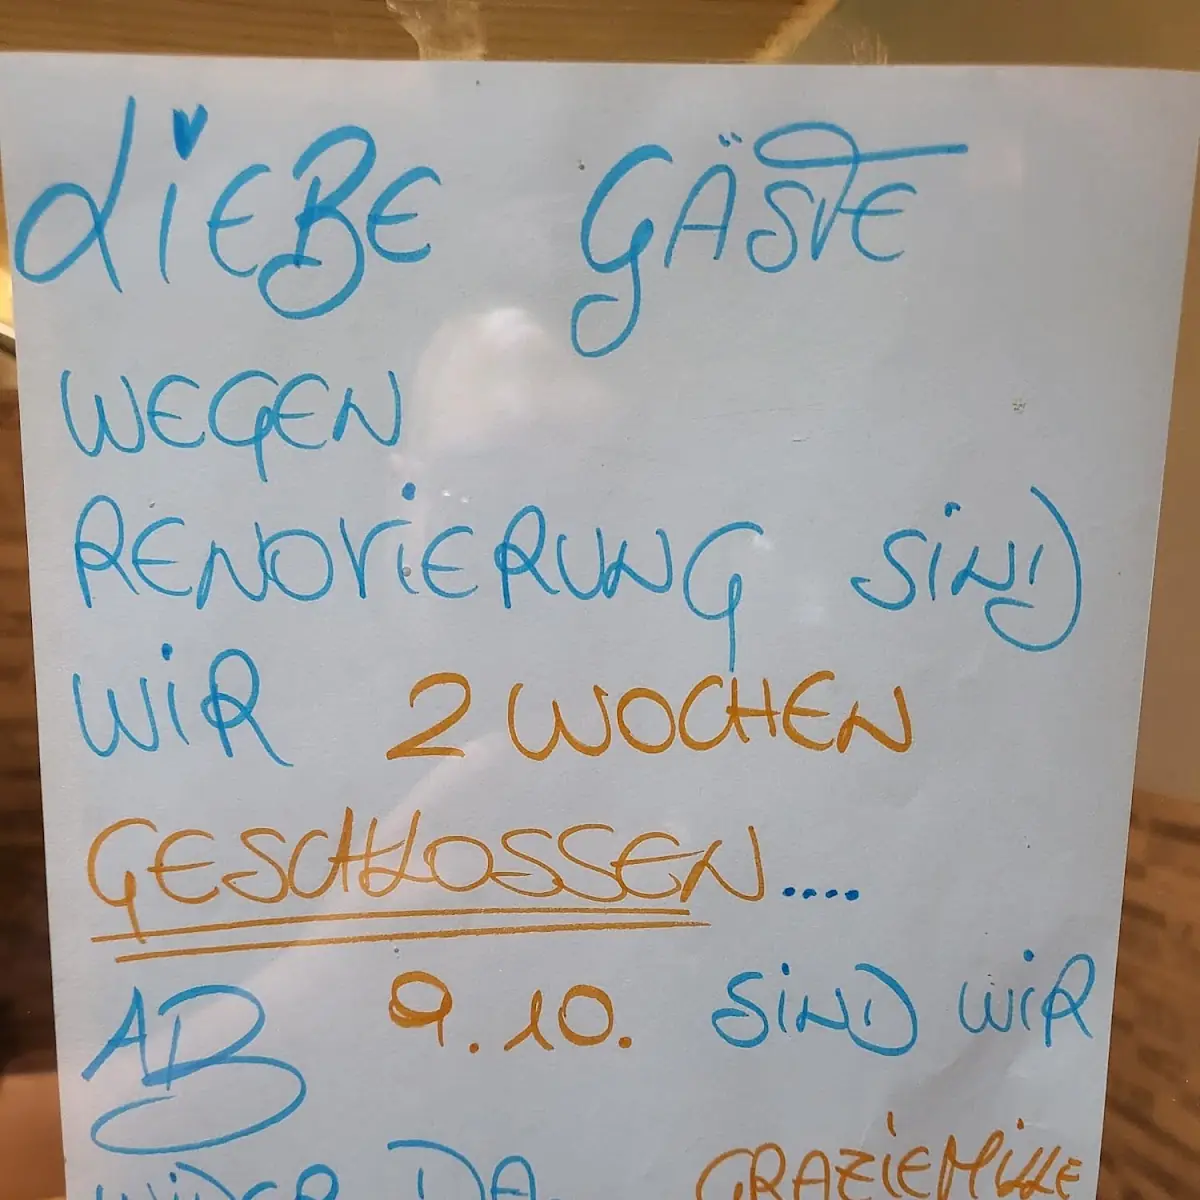 LiEBE GÄSTE
WEGEN
RENOViERUNG SiND
WiR 2 WOCHEN
GESCHLOSSEN....
AB 9.10. SiND WiR
WiDER DA. GRAZIEMiLLE